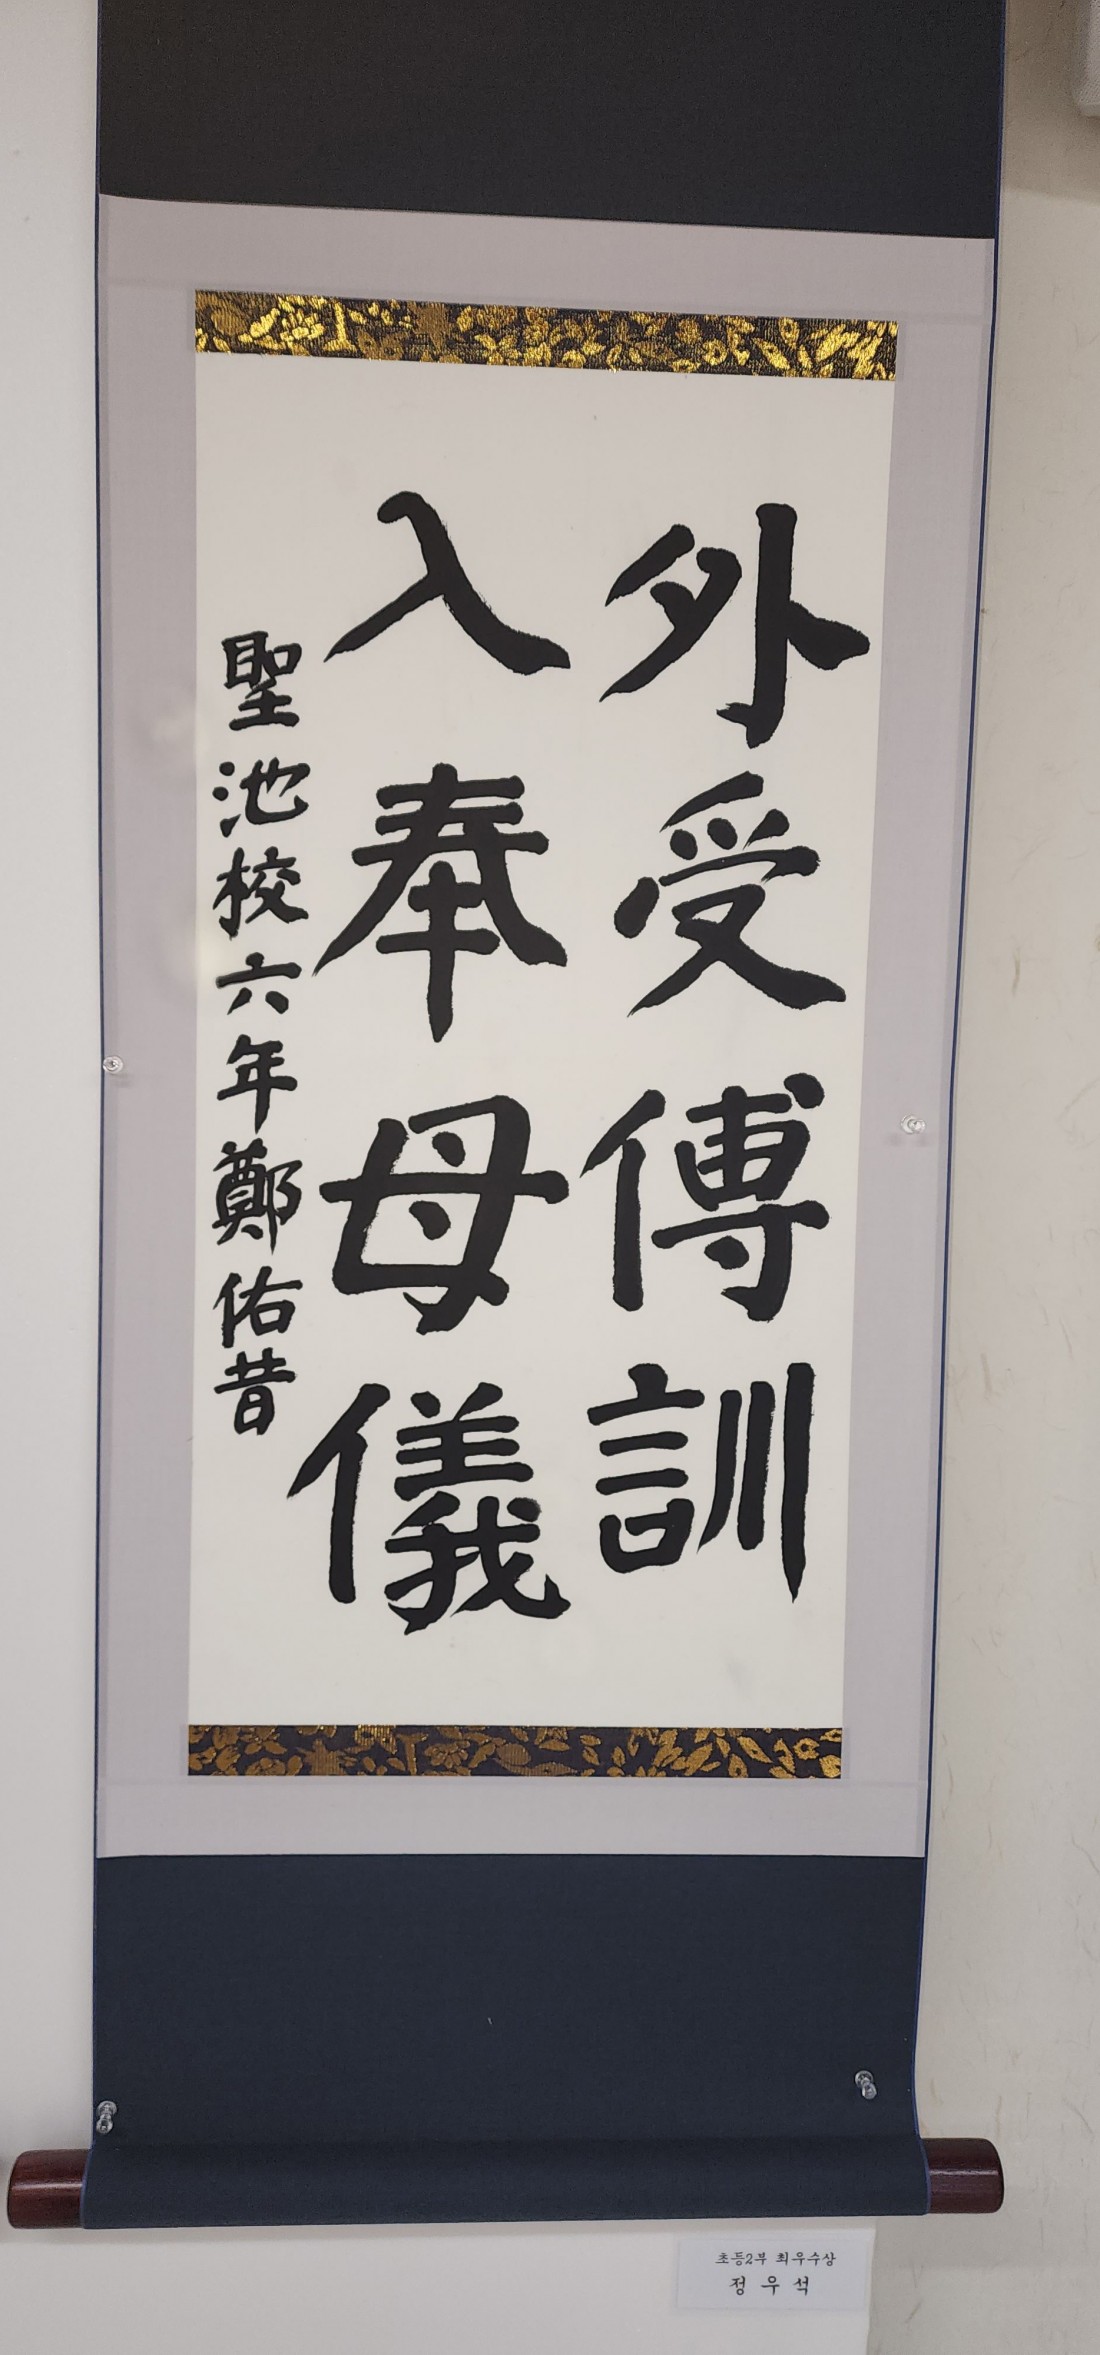 外受傅訓
入奉母儀
聖池校六年鄭佑昔
초등2부 최우수상
정 우 석